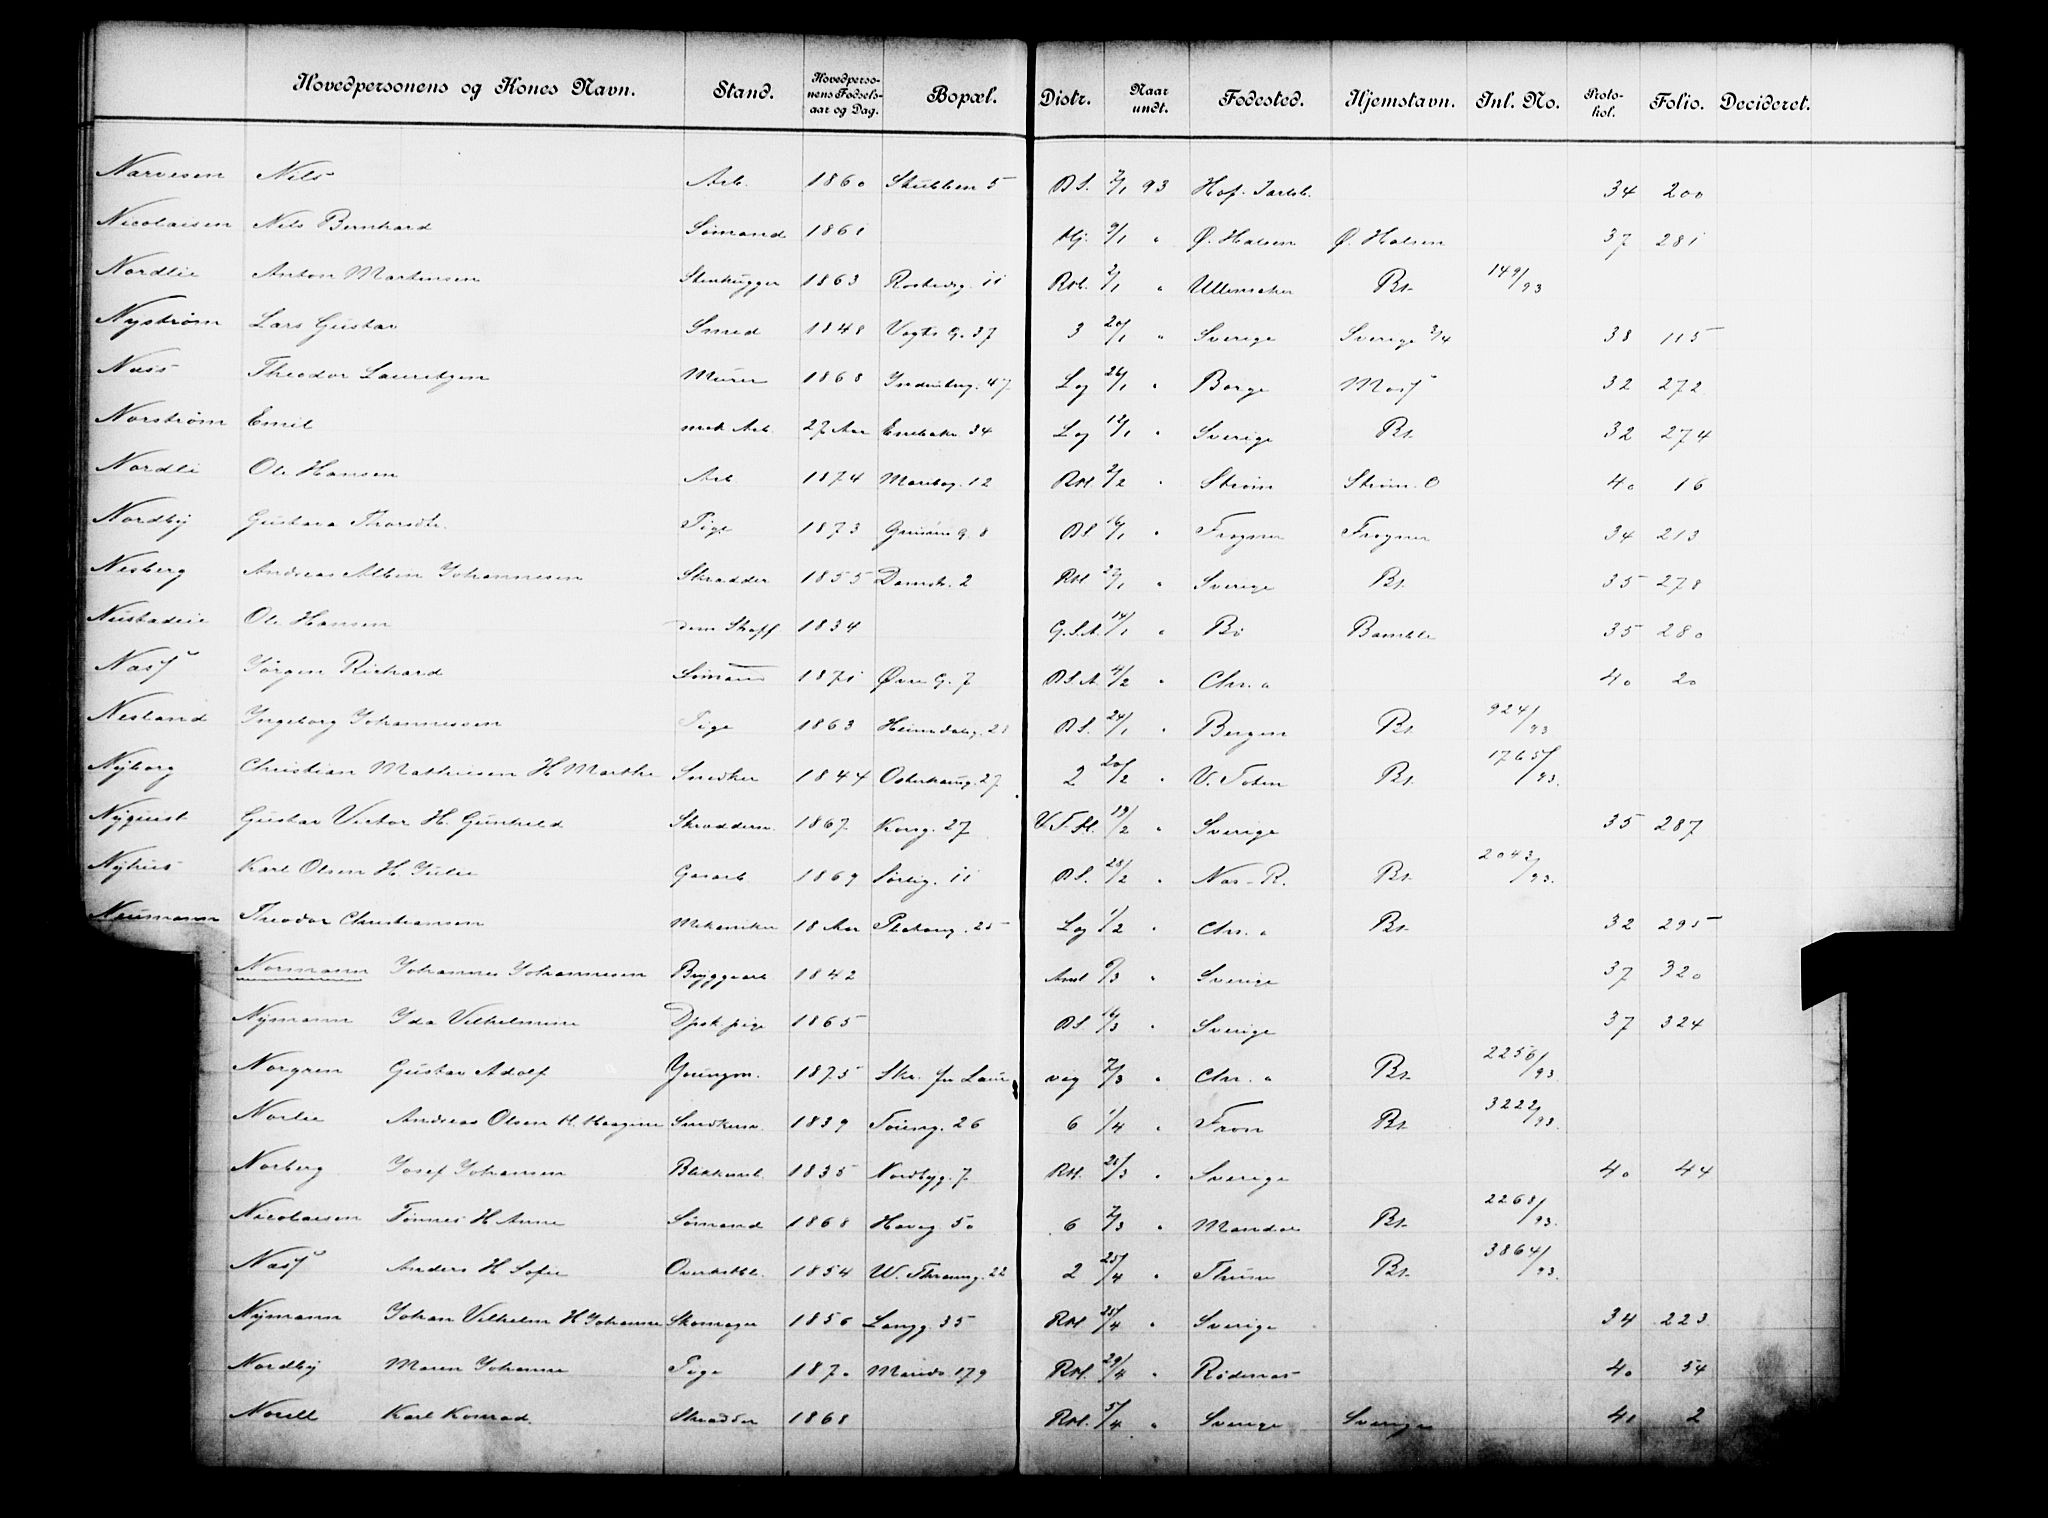 Hovedpersonens og Kones Navn. Stand. Hovedperso-nens Fødsels-aar og Dag. Bopæl. Distr. Naar undt. Fødested. Hjemstavn. Inl. No. Proto-kol. Folio. Decideret.
Narvesen Nils Arb. 1860 Stubben 5 BS. 93 Hof. Jarlsb. 34 200
Nicolaisen Nils Bernhard Sømand 1861 Hj. 9/1 " Ø. Halsen Ø. Halsen 37 281
Nordlie Anton Martinsen Stenhugger 1863 11 RM. 2/1 " Ullensaker Bt. 149/93
Nystrøm Lars Gustav Smed 1848 Vogts G. 37 3 20/1 " Sverige Sverige 3/4 38 115
Næss Theodor Lauritzen Murer 1868 47 Log 26/1 " Borge Moss 32 272
Norstrøm Emil mek Arb. 27 Aar Enebakv. 34 Log 12/1 " Sverige Bt. 32 274
Nordli Ole Hansen Arb 1874 Maribog. 12 RM. 2/2 " Strøm Strøm. O 40 16
Nordby Gustava Thorsdtr. Pige 1873 8 BS 16/1 " Frogner Frogner 34 213
Nesberg Andreas Albin Johannesen Skrædder 1855 Damstr. 2 RM 27/1 " Sverige Bt. 35 278
Ole Hansen dom Skoff 1834 G.S.A. 14/1 " Bø Bamble 35 280
Næss Jørgen Richard Sømand 1871 Øvre G. 7 B.S.A. 4/2 " Chr.a 40 20
Nesland Ingeborg Johannessen Pige 1863 Heimdalsg. BS. 24/1 " Bergen Bt. 924/93
Nyborg Christian Mathiesen H. Marthe Snedker 1844 Osterhausg. 27 2 20/2 " V. Toten Bt. 1765/93.
Nyquist Gustav Victor H. Gunhild Skræddersv. 1867. Kong. 27 19/2 " Sverige 35 287
Nyhus Karl Olsen H. Julie Gasarb 1869 Sørlig. 11 BS. 28/2 " Næs - R. Bt. 2043/93.
Neumann Theodor Christiansen Mekaniker 18 Aar 25 Log 1/2 " Chr. a Bt. 32 295
Normann Johannes Johannesen Bryggearb 1842 /3 " Sverige 37 320
Nymann Ida Vilhelmine Tjst.pige 1865 BS 16/3 " Sverige 37 324
Norgren Gustav Adolf Youngm. 1875 vig 7/3 " Chr. a Bt. 2256/93.
Norlie Andreas Olsen H. Snedkersv. 1839 Tøieng. 26 6 1/4 " Fron Bt. 3222/93.
Norberg Josef Johansen Blikkensl. 1835 Nordbyg. 7 RM. /3 " Sverige 40 44
Nicolaisen Tønnes H Anne Sømand 1868 Haveg 50 6 7/3 " Mandal Bt. 2268/93.
Næss Anders H. Sofie 1854 W. Thraneg. 22 2 25/4 " Bt. 3864/93.
Nymann Johan Vilhelm H Johanne Skomager 1856 Langg. 35 RM. 25/4 " Sverige 34 223
Nordby Maren Johanne Pige 1870 Marids. 179 RM. 29/4 " Rødenæs 40 54
Norell Karl Konrad. Skrædder 1868 RM. 5/4 " Sverige Sverige 41 2